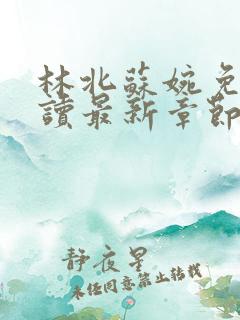 林北蘇婉免
讀最新章節
靜夜星
未经同意禁止转载